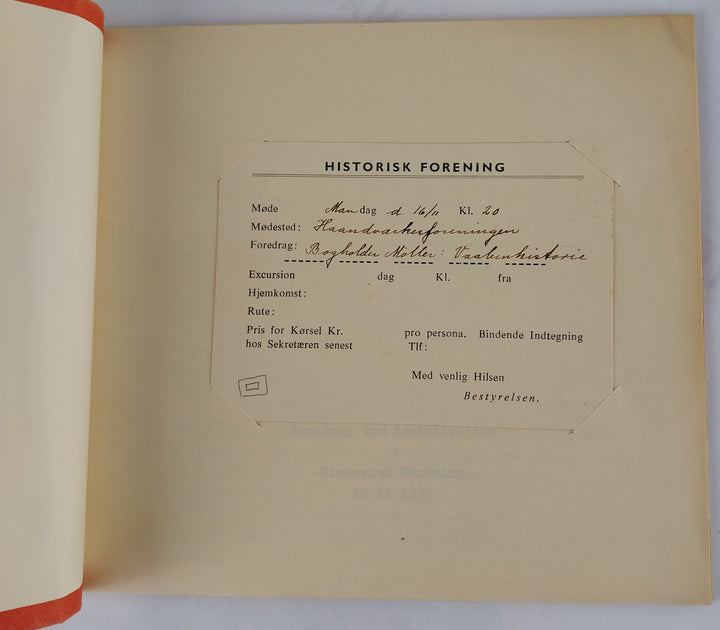 HISTORISK FORENING
Møde Mandag d. 16/11 Kl. 20
Mødested: Haandværkerforeningen
Foredrag: Bogholder Møller: Vaabenhistorie
Excursion dag Kl. fra
Hjemkomst:
Rute:
Pris for Kørsel Kr. pro persona. Bindende Indtegning
hos Sekretæren senest Tlf:
Med venlig Hilsen
Bestyrelsen.
Foredrag med demonstration
i
Historisk Forening